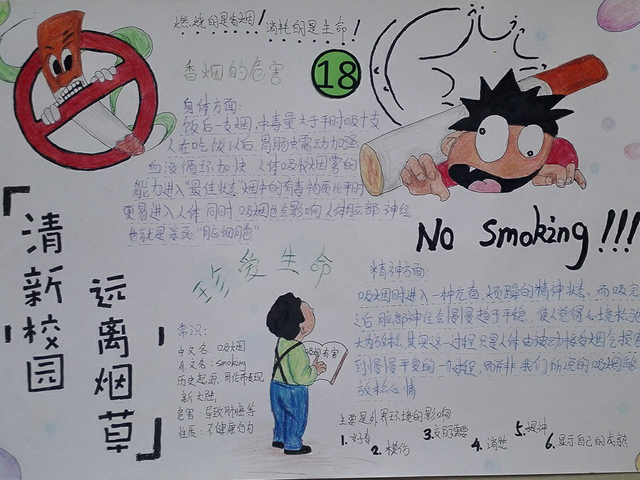 燃烧的是香烟!消耗的是生命!
香烟的危害
18
身体方面:
饭后一支烟,中毒量大于平时吸十支
人在吃饭以后,胃肠蠕动加强
血液循环加快 人体吸收烟雾的
能力进入最佳状态 烟中的有毒物质比平时
更易进入人体 同时 吸烟也会影响人体脑部神经
也就是杀死"脑细胞"
No smoking!!!
清新校园
远离烟草
珍爱生命
常识:
中文名:吸烟
英文名:smoking
历史起源:哥伦布发现
新大陆,
危害:导致肺癌等
性质:不健康行为
吸烟有害
精神方面:
吸烟时进入一种亢奋、烦躁的精神状态,而吸完
之后脑部神经会慢慢趋于平缓,使人觉得心境松弛
其实这一过程只是人体由被动接受烟气损伤
到慢慢平衡的一个过程,而并非我们所说的吸烟能
放松心情
主要是外界环境的影响
1.好奇
2.模仿
3.交际需要
4.消愁
5.提神
6.显示自己的成熟